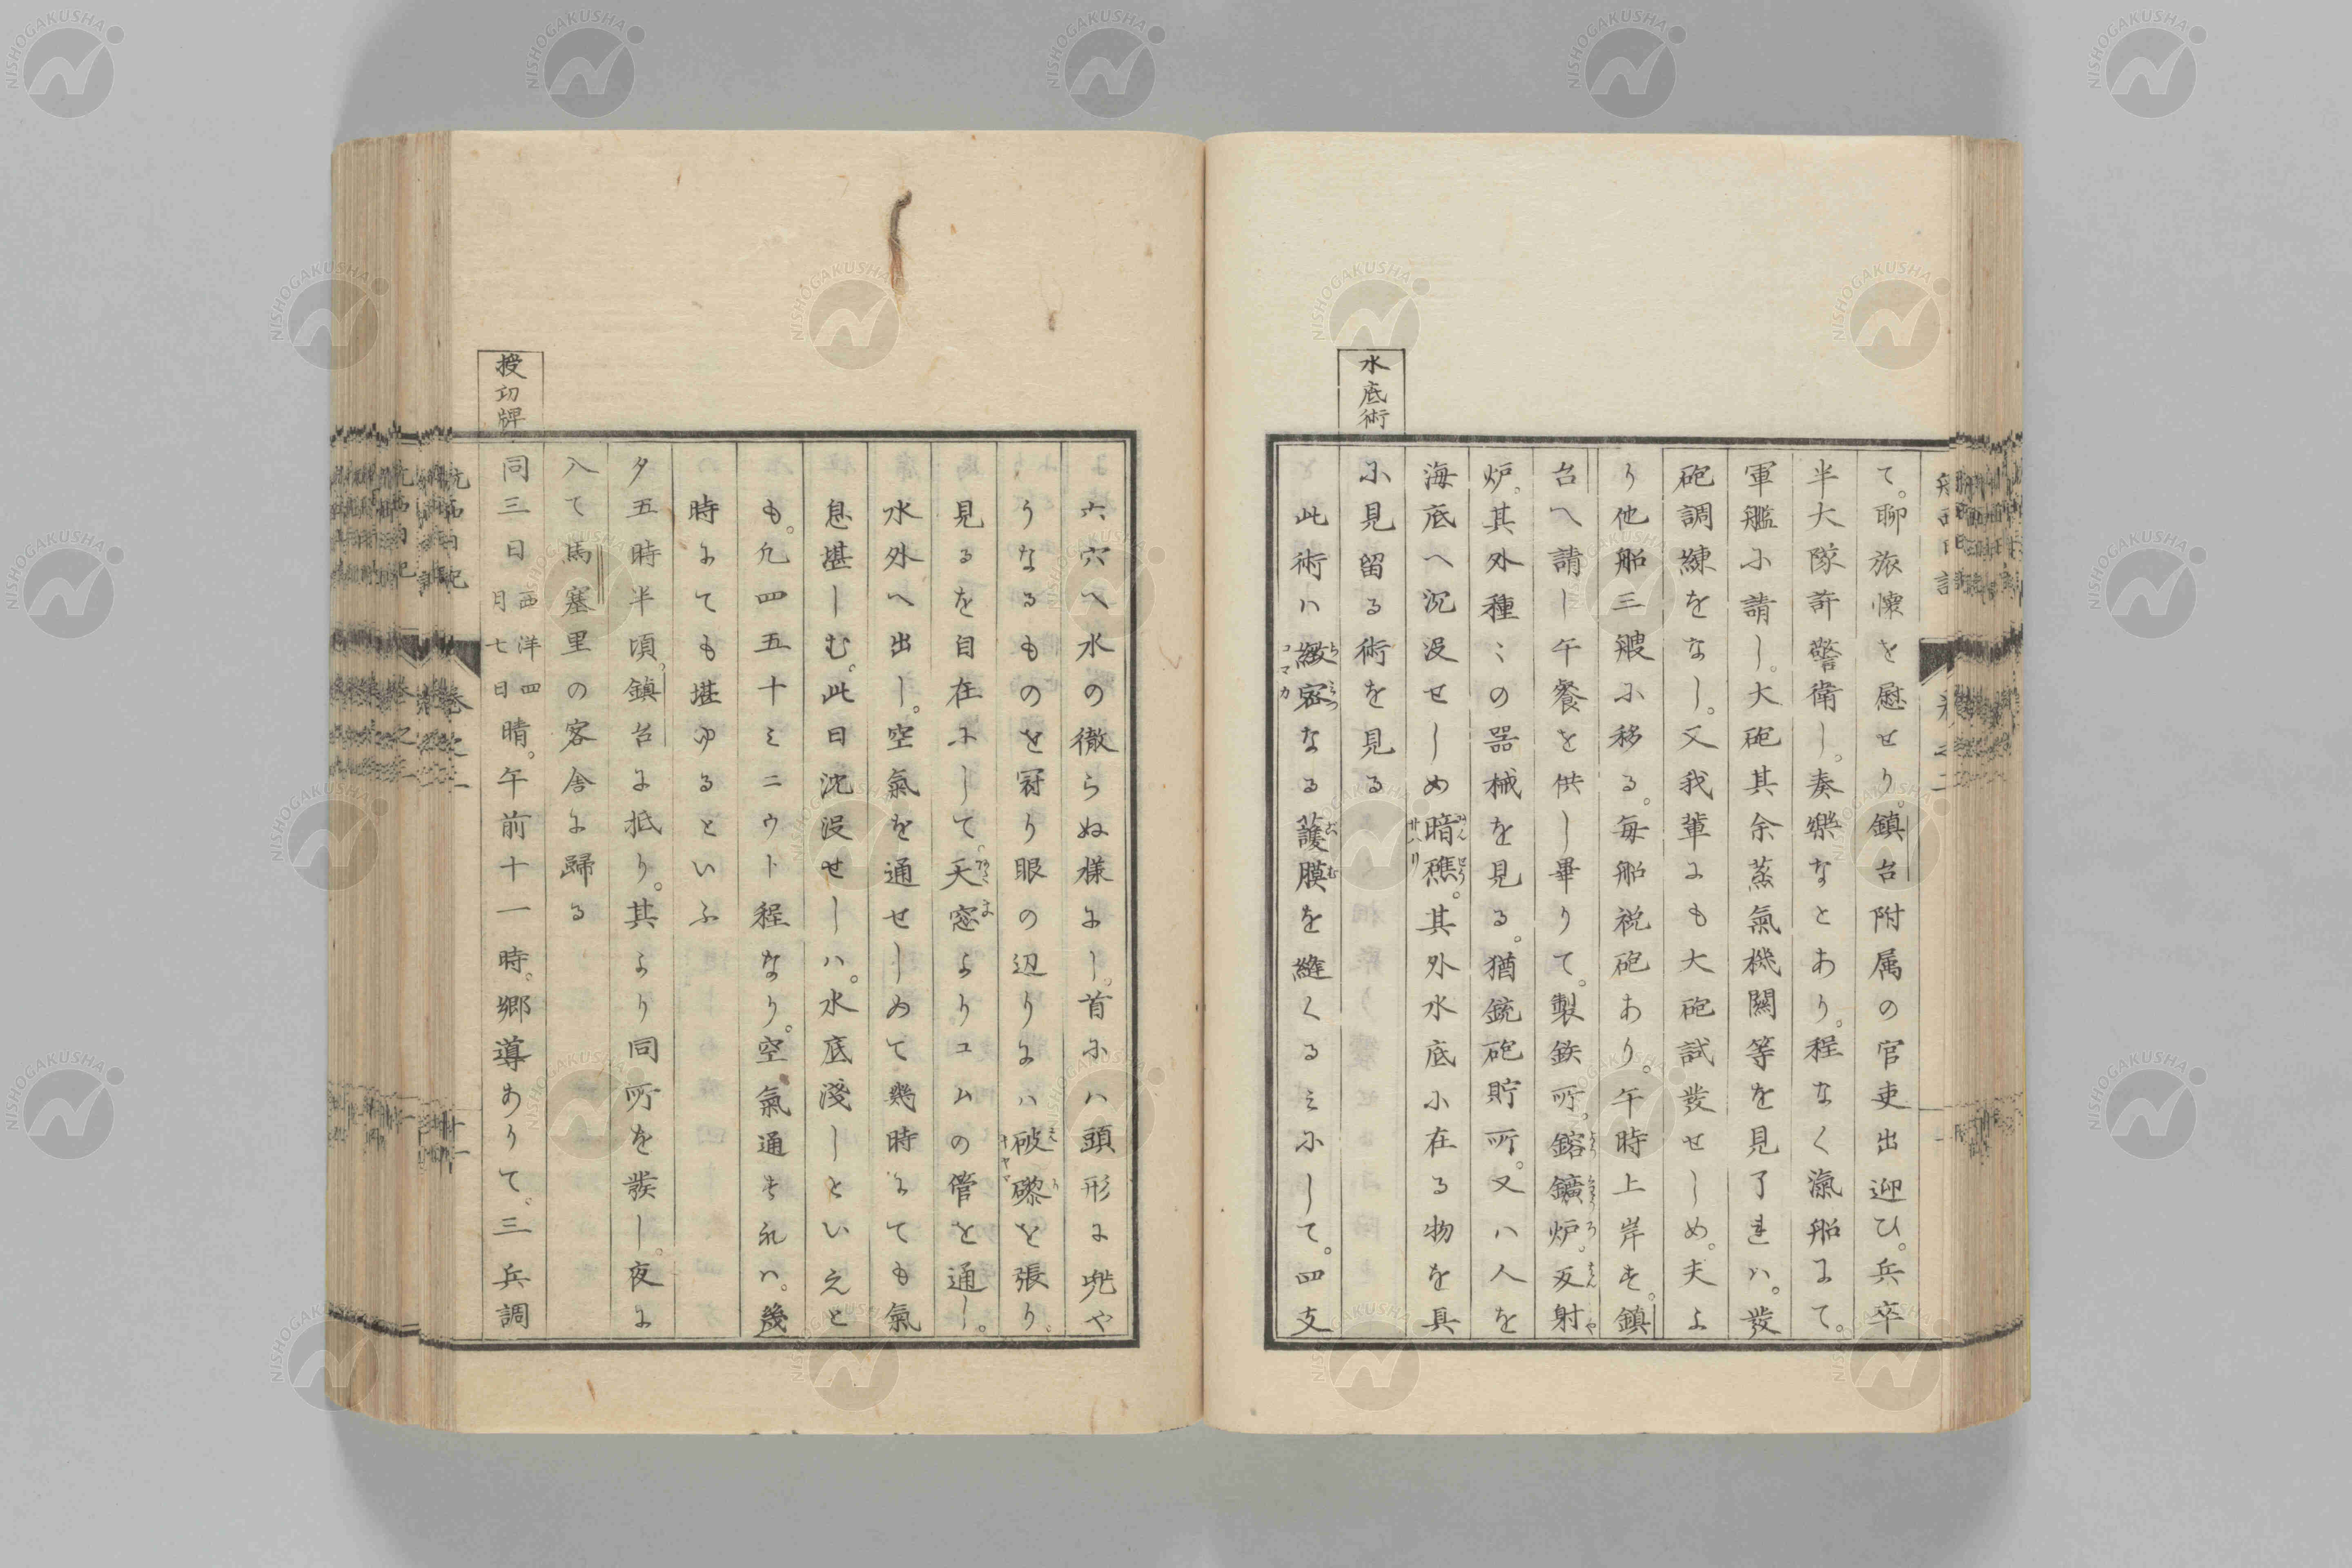 て。聊旅懐を慰せり。鎮台附属の官吏出迎ひ。兵卒
半大隊許警衛し。奏樂なとあり。程なく滊船にて。
軍艦に請し。大砲其余蒸氣機關等を見了れハ。發
砲調練をなし。又我輩にも大砲試發せしめ。夫よ
り他船三艘に移る。毎船祝砲あり。午時上岸す。鎮
台へ請し午餐を供し畢りて。製鉄所。鎔鑛炉。反射
炉。其外種〻の器械を見る。猶銃砲貯所。又ハ人を
海底へ沉没せしめ暗礁。其外水底に在る物を具
水底術
に見留る術を見る
此術ハ緻密なる護膜を縫くるミにして。四支
六穴へ水の徹らぬ様にし。首にハ頭形に兜や
うなるものを冠り眼の辺りにハ破瓈を張り。
見るを自在にして。天窓よりコムの管を通し。
水外へ出し。空氣を通せしめて幾時にても氣
息堪しむ。此日沈没せしハ。水底淺しといえと
も。凢四五十ミニウト程なり。空氣通すれハ。幾
時にても堪ゆるといふ
夕五時半頃。鎮台に抵り。其より同所を發し。夜に
入て馬塞里の客舎に歸る
授功牌
同三日 西洋四月七日 晴。午前十一時。郷導ありて。三兵調